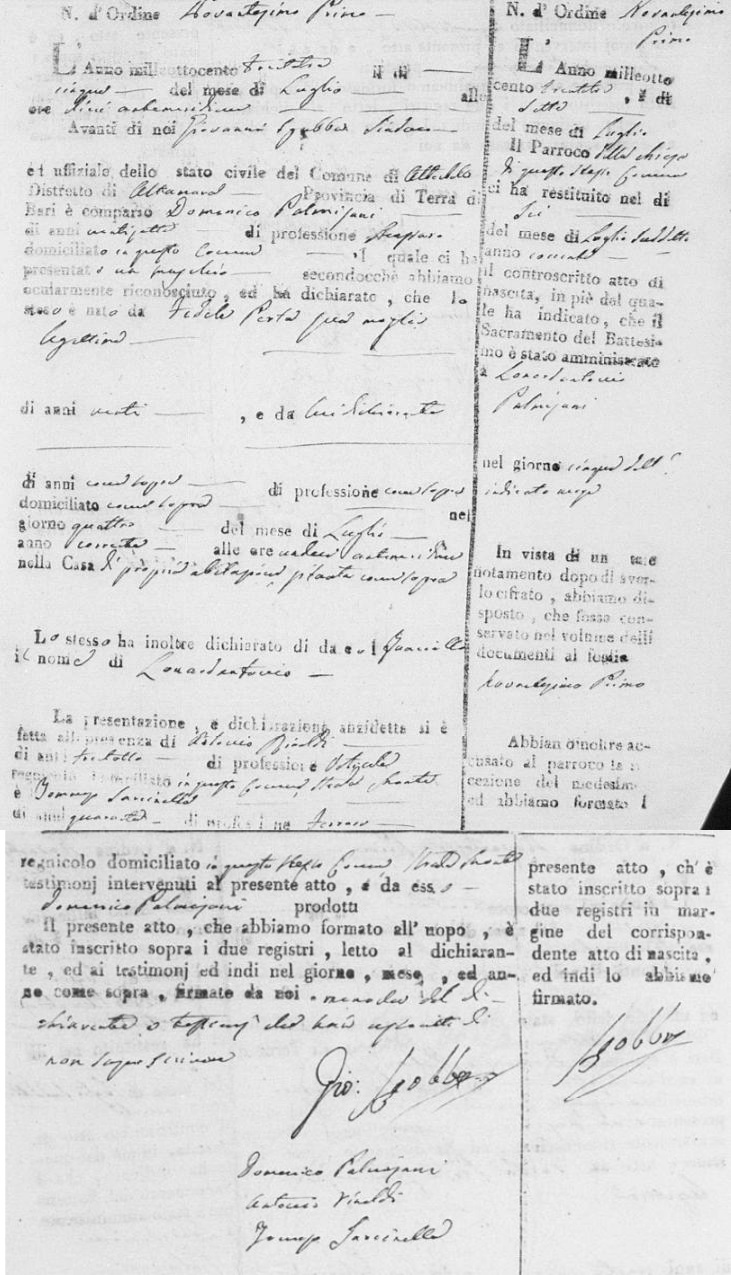 N. d' Ordine Novantesimo Primo
L' Anno milleottocento
cinque del mese di Luglio alle
ore dieci antemeridiane
Avanti di noi Giovanni Sgobba Sindaco
ed uffiziale dello stato civile del Comune di
Distretto di Provincia di Terra di
Bari è comparso Domenico Palmisani
di anni ventisette di professione
domiciliato in questo Comune 'l quale ci ha
presentato un maschio secondocchè abbiamo
ocularmente riconosciuto , ed ha dichiarato , che lo
stesso è nato da Fedele Perta sua moglie
legittima
di anni venti , e da lui dichiarante
di anni come sopra di professione come sopra
domiciliato come sopra nel
giorno quattro del mese di Luglio
anno corrente alle ore antemeridiane
nella Casa di propria abitazione come sopra
Lo stesso ha inoltre dichiarato di da e al Fanciullo
il nome di Leonardantonio
La presentazione , e dichiarazione anzidetta si è
fatta alla presenza di Antonio Rinaldi
di anni trentotto di professione
regnicolo domiciliato in questo Comune Strada
e Giuseppe Sarcinella
di anni quaranta di professione
regnicolo domiciliato in questo stesso Comune Strada
testimonj intervenuti al presente atto , e da esso
Domenico Palmisani prodotti
Il presente atto , che abbiamo formato all' uopo , è
stato inscritto sopra i due registri , letto al dichiaran-
te , ed ai testimonj ed indi nel giorno , mese , ed an-
no come sopra , firmato da noi . del di-
chiarante e testimonj di
non sapere scrivere
Gio: Sgobba
Domenico Palmisani
Antonio Rinaldi
Giuseppe Sarcinella
N. d' Ordine Novantesimo
Primo
L' Anno milleotto
cento , il di
sette
del mese di Luglio
Il Parroco della chiesa
di questo stesso Comune
ci ha restituito nel di
Sei
del mese di Luglio suddetto
anno corrente
il controscritto atto di
nascita, in piè del qua-
le ha indicato, che il
Sacramento del Battesi-
mo è stato amministrato
a Leonardantonio
Palmisani
nel giorno cinque dell'
indicato mese
In vista di un tale
notamento dopo di aver-
lo cifrato , abbiamo di-
sposto , che fosse con-
servato nel volume delli
documenti al foglio
Novantesimo Primo
Abbian d'inoltre ac-
cusato al parroco la ri
cezione del medesim
ed abbiamo formato l
presente atto , ch' è
stato inscritto sopra i
due registri in mar-
gine del corrispon-
dente atto di nascita ,
ed indi lo abbiamo
firmato.
Sgobba